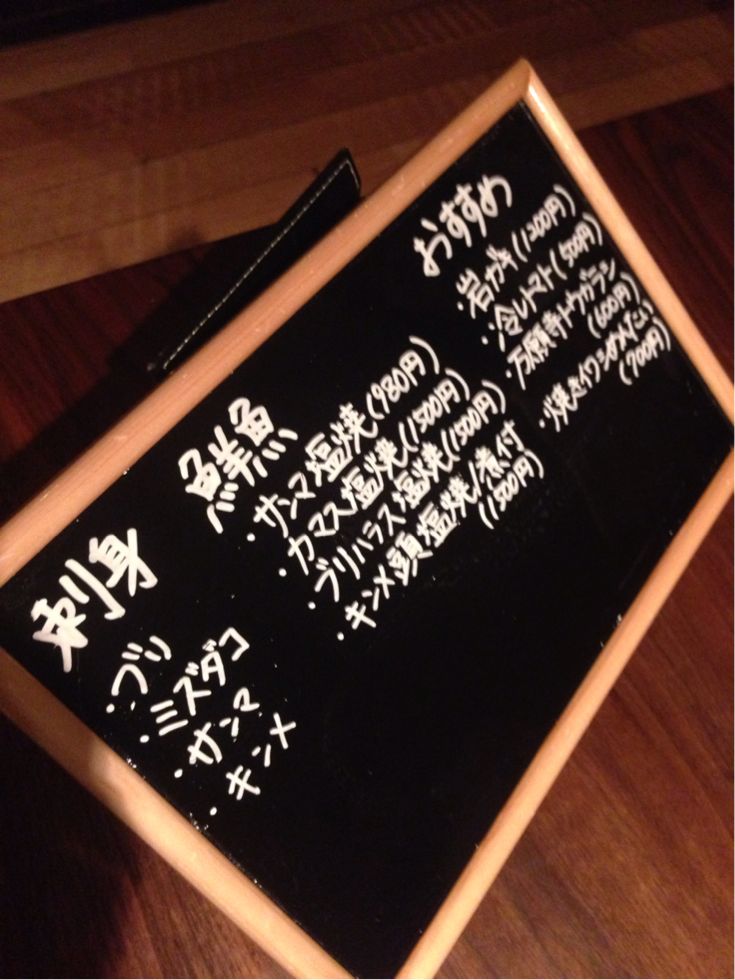 刺身
・ブリ
・ミズダコ
・サンマ
・キンメ
鮮魚
・サンマ塩焼(980円)
・カマス塩焼(1500円)
・ブリハラス塩焼(1500円)
・キンメ頭塩焼/煮付
(1500円)
おすすめ
・岩ガキ(1200円)
・冷しトマト(500円)
・万願寺トウガラシ
(600円)
・焼きイワシめんたい
(700円)